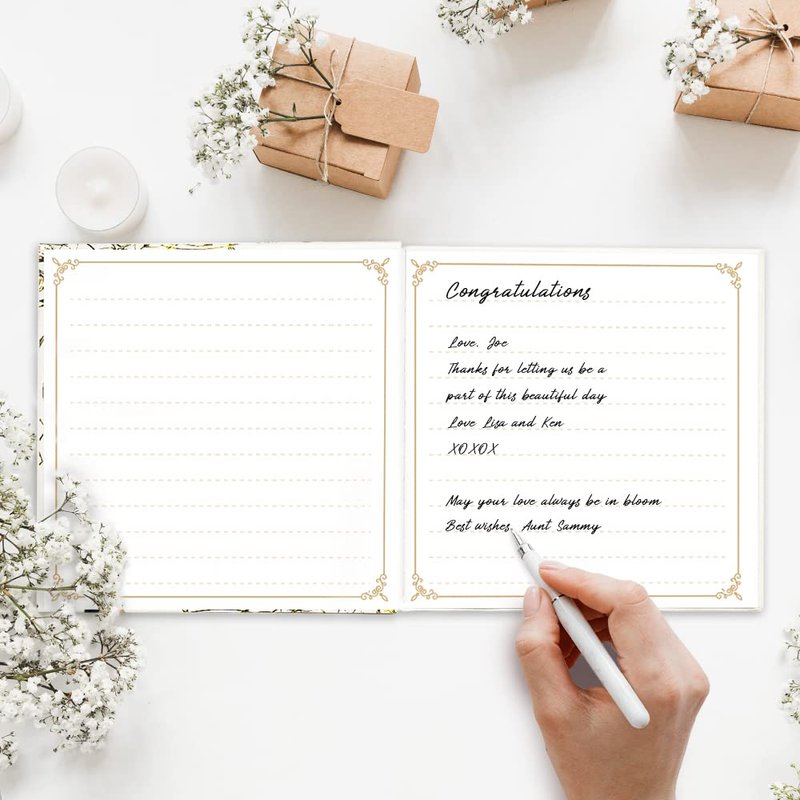 Congratulations
Love, Joe
Thanks for letting us be a
part of this beautiful day
Love Lisa and Ken
XOXOX
May your love always be in bloom
Best wishes, Aunt Sammy